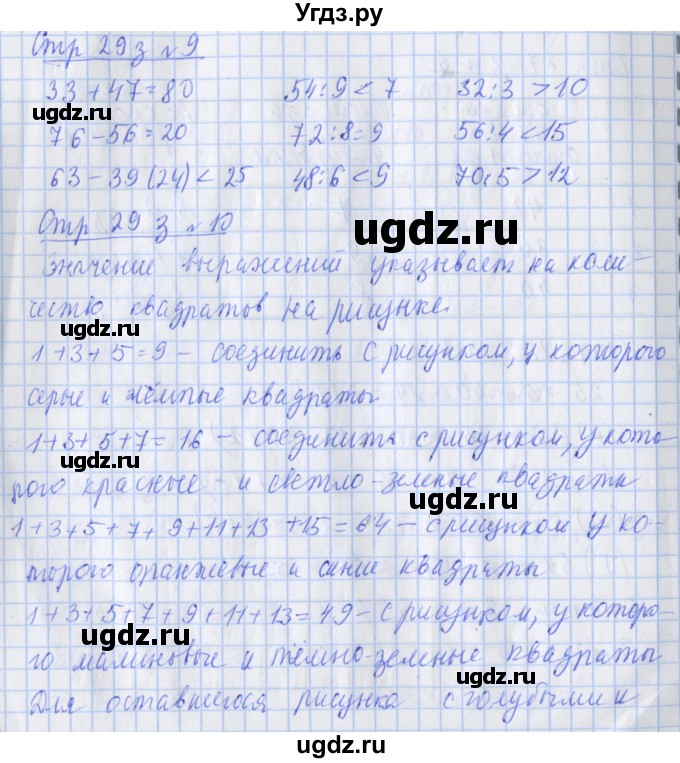 Угдз.ру
Стр 29 з №9
33 + 47 = 80 54:9 < 7 32:3 > 10
ugdz.ru
76 - 56 = 20 72:8 = 9 56:4 < 15
63 - 39 (24) < 25 48:6 < 9 70:5 > 12
ugdz.ru
Стр 29 з №10
ugdz.ru
значение выражений указывает на коли-
чество квадратов на рисунке.
ugdz.ru
ugdz.ru
1+3+5=9 - соединить с рисунком, у которого
серые и жёлтые квадраты
ugdz.ru
1+3+5+7= 16 - соединить с рисунком, у кото-
рого красные и светло-зеленые квадраты
ugdz.ru
ugdz.ru
1+3+5+7+9+11+13+15=64 - с рисунком у ко-
торого оранжевые и синие квадраты
ugdz.ru
1+3+5+7+9+11+13=49 - с рисунком, у которо-
ugdz.ru
го малиновые и тёмно-зеленые квадраты
ugdz.ru
Для оставшегося рисунка с голубыми и
ugdz.ru